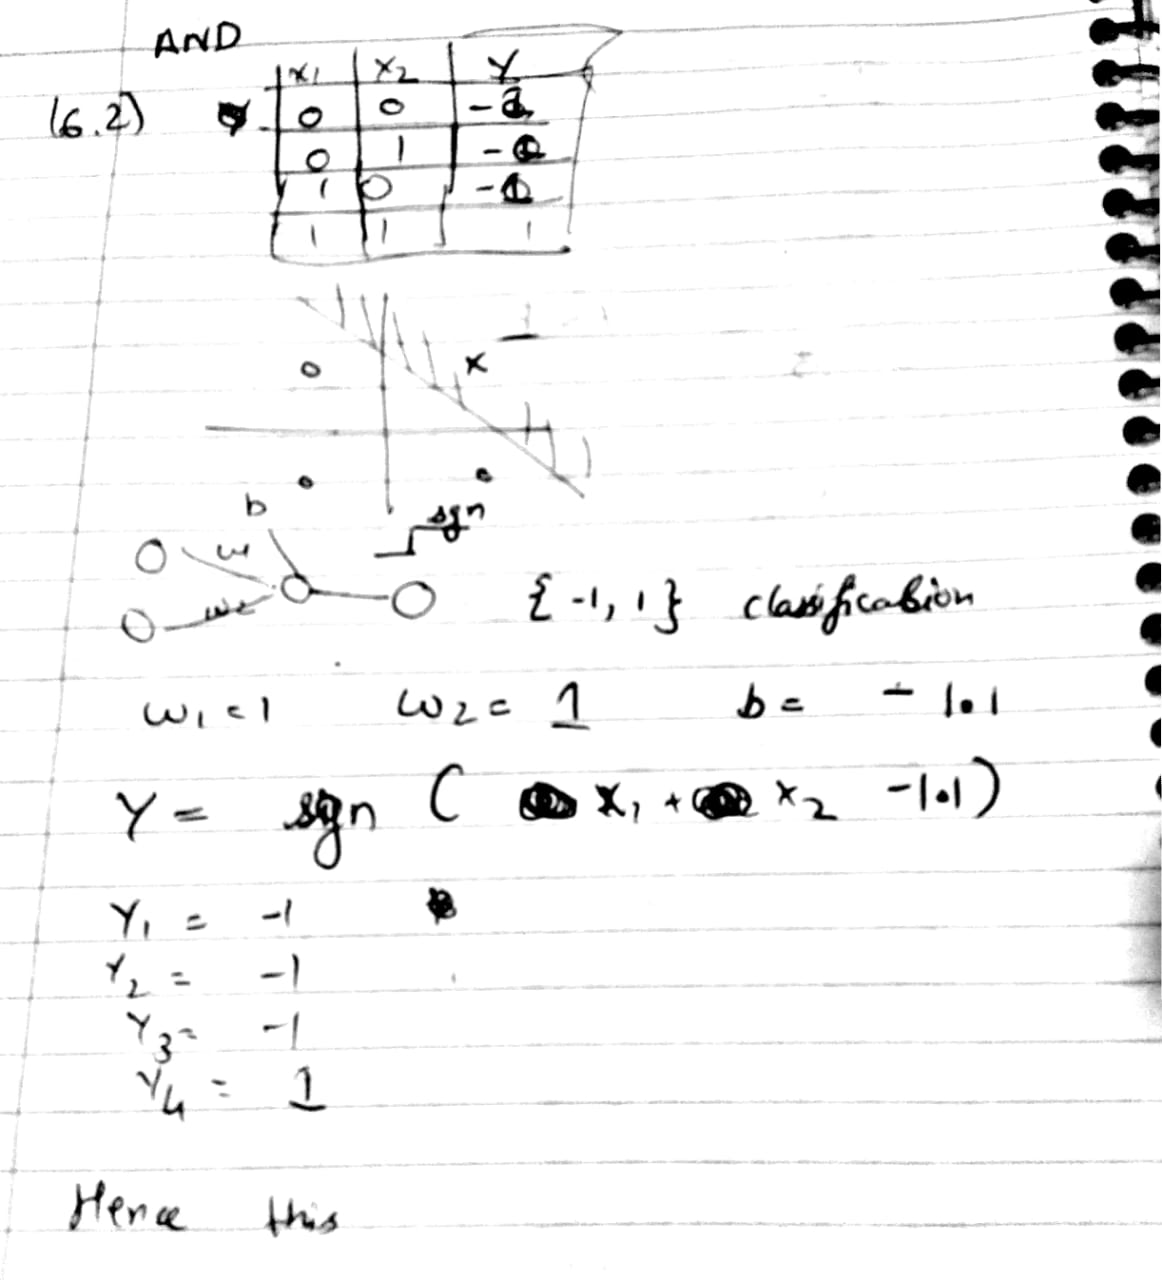 AND
x1 x2 Y
(6.2) 0 0 -1
0 1 -1
1 0 -1
1 1 1
x
b
sgn
w1
w2
{-1, 1} classification
w1 = 1 w2 = 1 b = -1.1
Y = sgn ( x1 + x2 -1.1)
Y1 = -1
Y2 = -1
Y3 = -1
Y4 = 1
Hence this